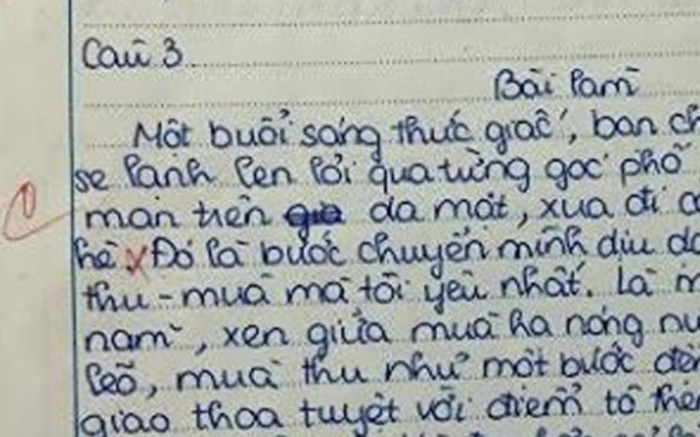 Câu 3
Bài làm
Một buổi sáng thức giấc, bạn ch
se lạnh len lỏi qua từng góc phố
mơn trên da mát, xua đi c
hè. Đó là bước chuyển mình dịu dà
thu - mùa mà tôi yêu nhất. Là m
năm, xen giữa mùa hạ nóng nự
lẽo, mùa thu như một bước đệ
giao thoa tuyệt vời điểm tô thê